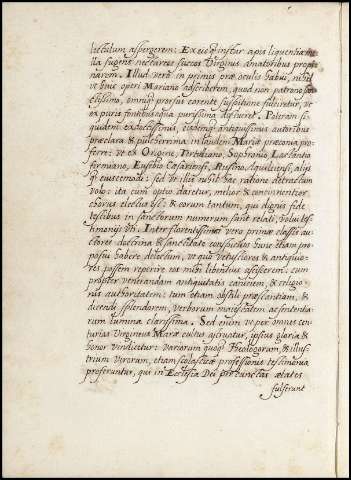 lectulum aspergerem: Ex ijs instar apis liquentia me
lla sugens nectareos succos Virginis amatoribus propi
narem. Illud verò in primis præ oculis habui, nihil
vt huic operi Mariano adscriberem, quod non patronos an
omniq; prorsus carente suspitione fulciretur, vt
ex puris fontibus aqua purissima deriuaret. Poteram si
quidem ex doctissimis, eisdemq; antiquissimis autoribus
præclara & pulcherrima in laudem Mariæ præconia pro
ferre: vt ex Origine, Tertuliano, Sophronio, Lactantio
firmiano, Eusebio Cæsariensi, Ruffino Aquileiensi, alijs
q; eiuscemodi: sed de illis nihil hac ratione detractum
volo: ita cum optio daretur, melior & concinnentior
chorus electus est: & eorum tantum, qui digni fide
testibus in sanctorum numerum sunt relati, volui tes
timonijs vti. Inter florentissimi vero primæ classis au
ctores doctrina & sanctitate conspicuos hunc etiam pro
posui habere delectum, vt quò vetustiores & antiquio
res possem reperire eos mihi libentius asciscerem: cum
propter venerandam antiquitatis caniciem, & religio
nis authoritatem: tum etiam ob styli præstantiam, &
dicendi splendorem, verborum maiestatem ac sententia
rum lumina clarissima. Sed enim vt per omnes cen
turias Virgineus Mariæ cultus agnoscatur, ipsius gloria &
honor vindicetur: variorum quoq; Theologorum, & illus
trium virorum, etiam scholasticæ professionis testimonia
proferuntur, qui in Ecclesia Dei per cunctas ætates
fulserunt